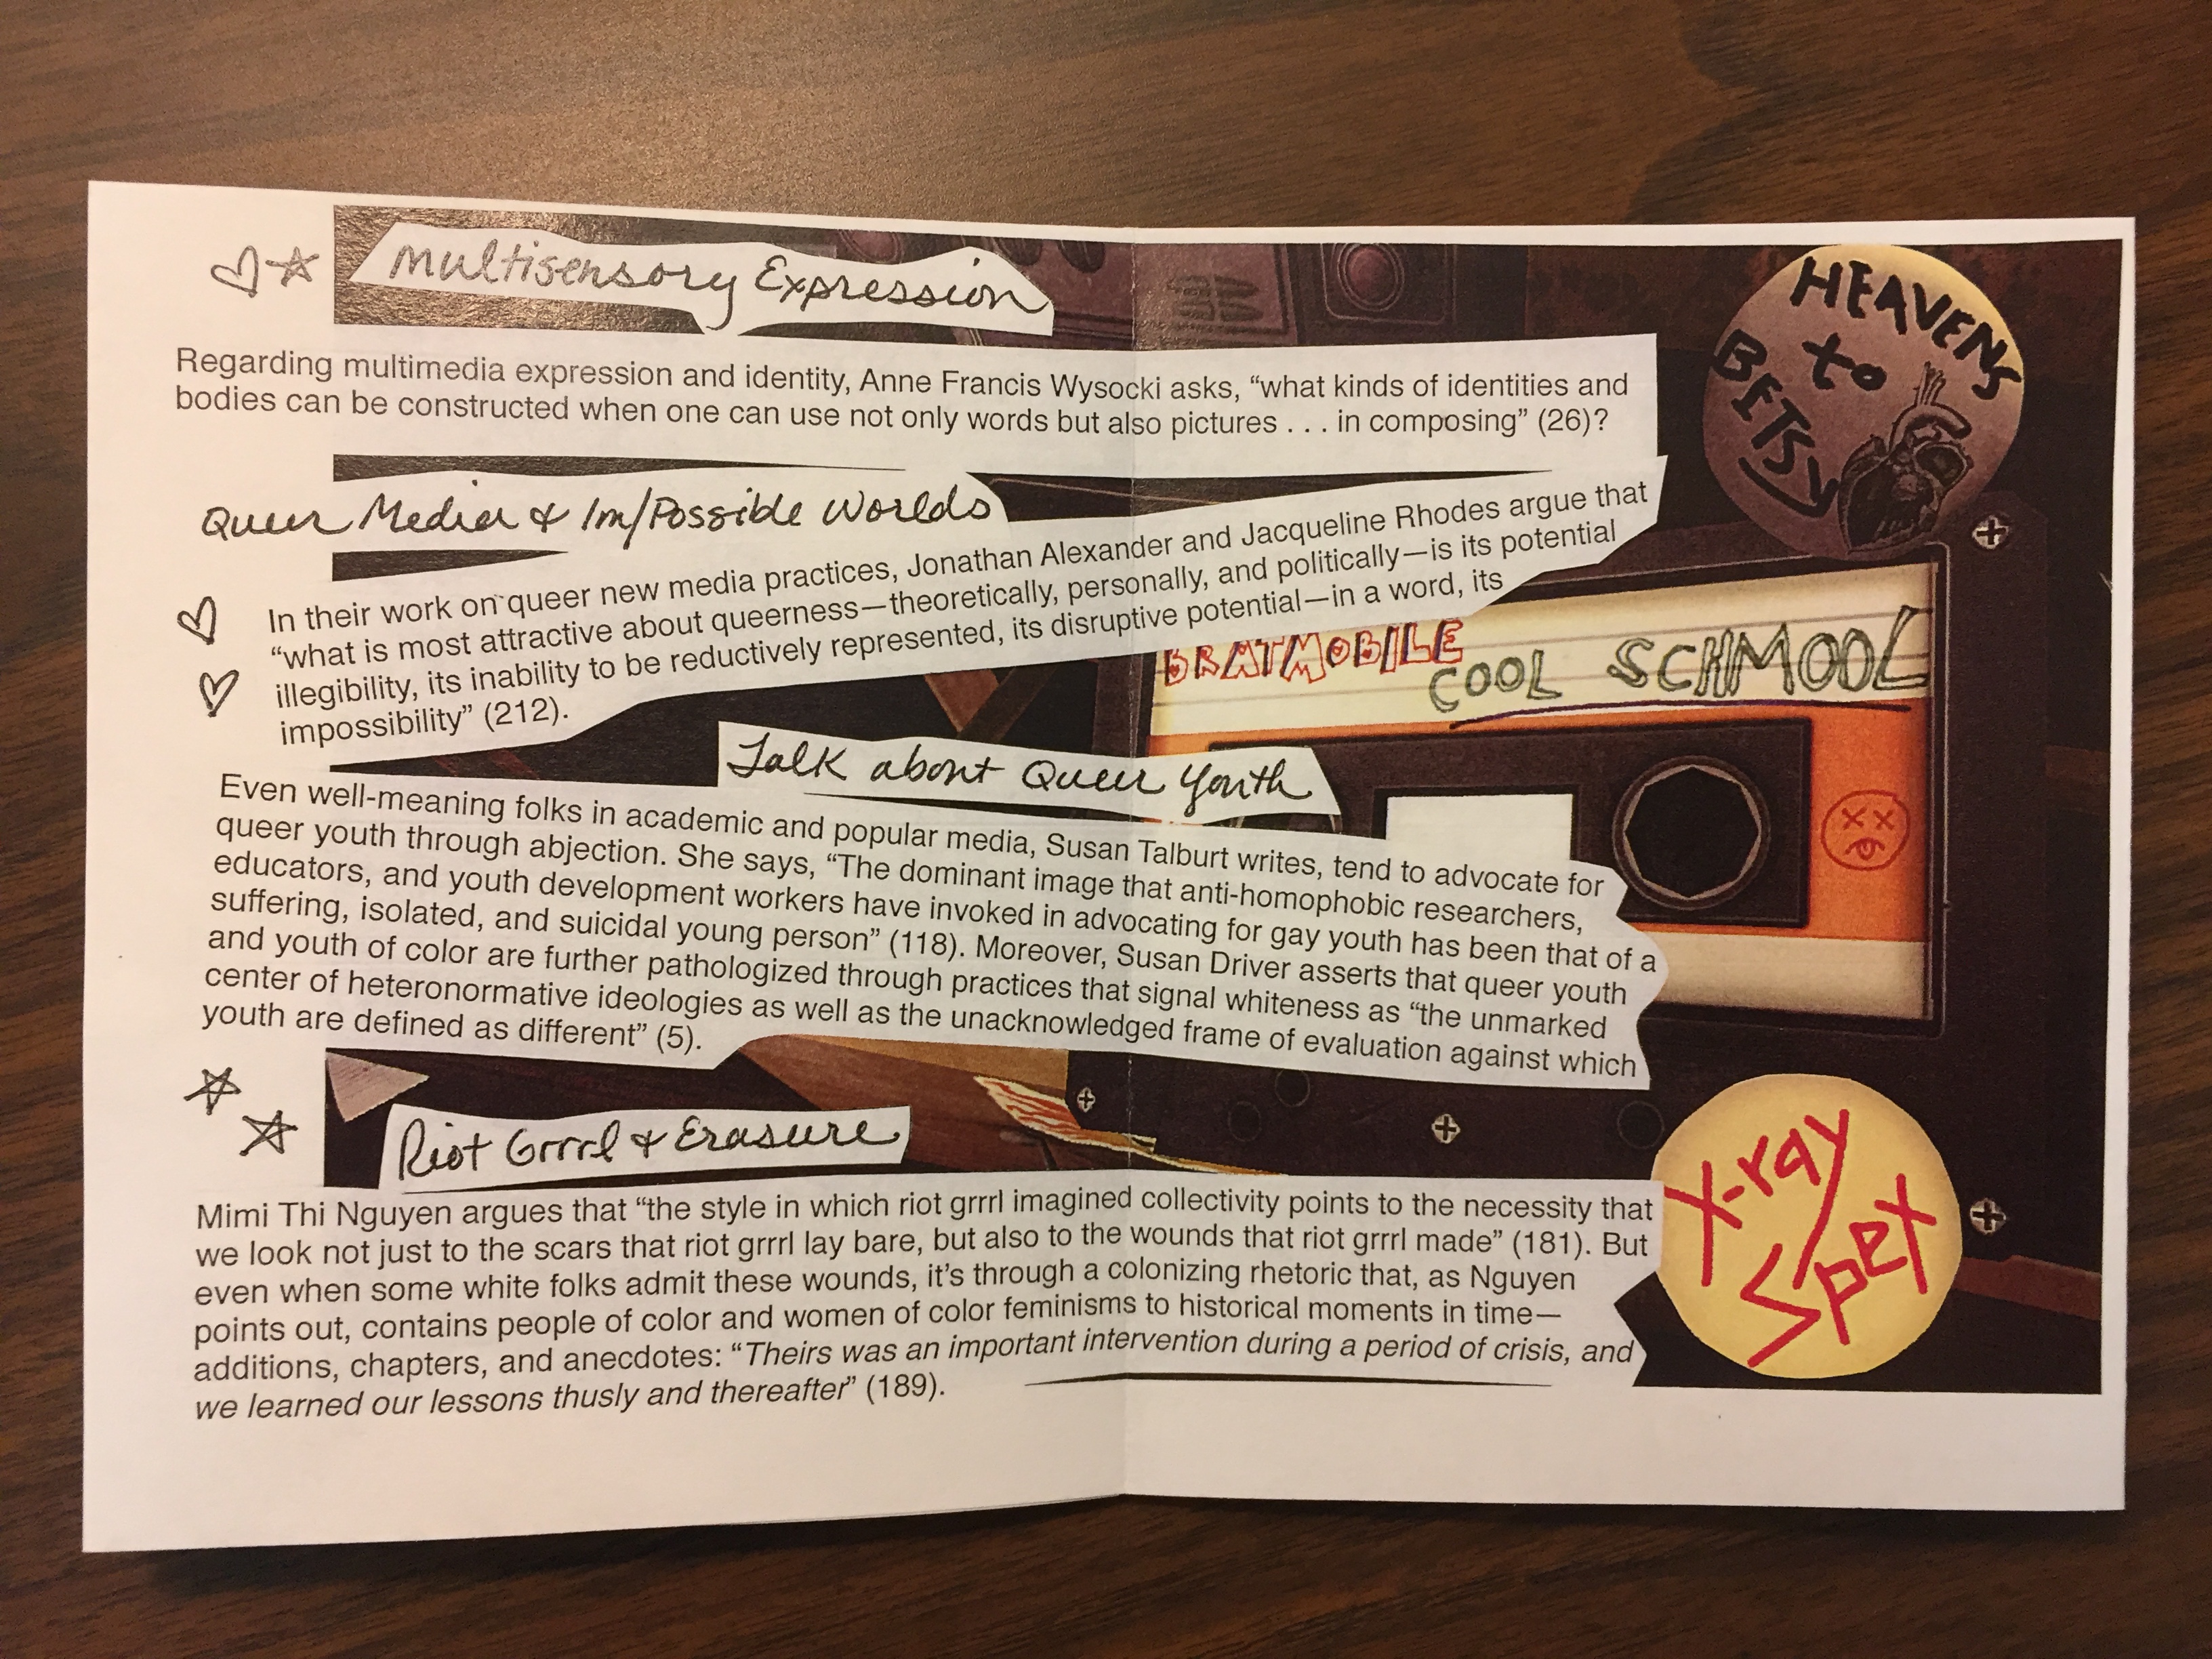 Multisensory Expression
Regarding multimedia expression and identity, Anne Francis Wysocki asks, “what kinds of identities and
bodies can be constructed when one can use not only words but also pictures . . . in composing” (26)?
Queer Media & Im/Possible Worlds
In their work on queer new media practices, Jonathan Alexander and Jacqueline Rhodes argue that
“what is most attractive about queerness—theoretically, personally, and politically—is its potential
illegibility, its inability to be reductively represented, its disruptive potential—in a word, its
impossibility” (212).
Talk about Queer Youth
Even well-meaning folks in academic and popular media, Susan Talburt writes, tend to advocate for
queer youth through abjection. She says, “The dominant image that anti-homophobic researchers,
educators, and youth development workers have invoked in advocating for gay youth has been that of a
suffering, isolated, and suicidal young person” (118). Moreover, Susan Driver asserts that queer youth
and youth of color are further pathologized through practices that signal whiteness as “the unmarked
center of heteronormative ideologies as well as the unacknowledged frame of evaluation against which
youth are defined as different” (5).
Riot Grrrl & Erasure
Mimi Thi Nguyen argues that “the style in which riot grrrl imagined collectivity points to the necessity that
we look not just to the scars that riot grrrl lay bare, but also to the wounds that riot grrrl made” (181). But
even when some white folks admit these wounds, it’s through a colonizing rhetoric that, as Nguyen
points out, contains people of color and women of color feminisms to historical moments in time—
additions, chapters, and anecdotes: “Theirs was an important intervention during a period of crisis, and
we learned our lessons thusly and thereafter” (189).
HEAVENS
to
BETSY
BRATMOBILE
COOL SCHMOOL
X-ray
Spex